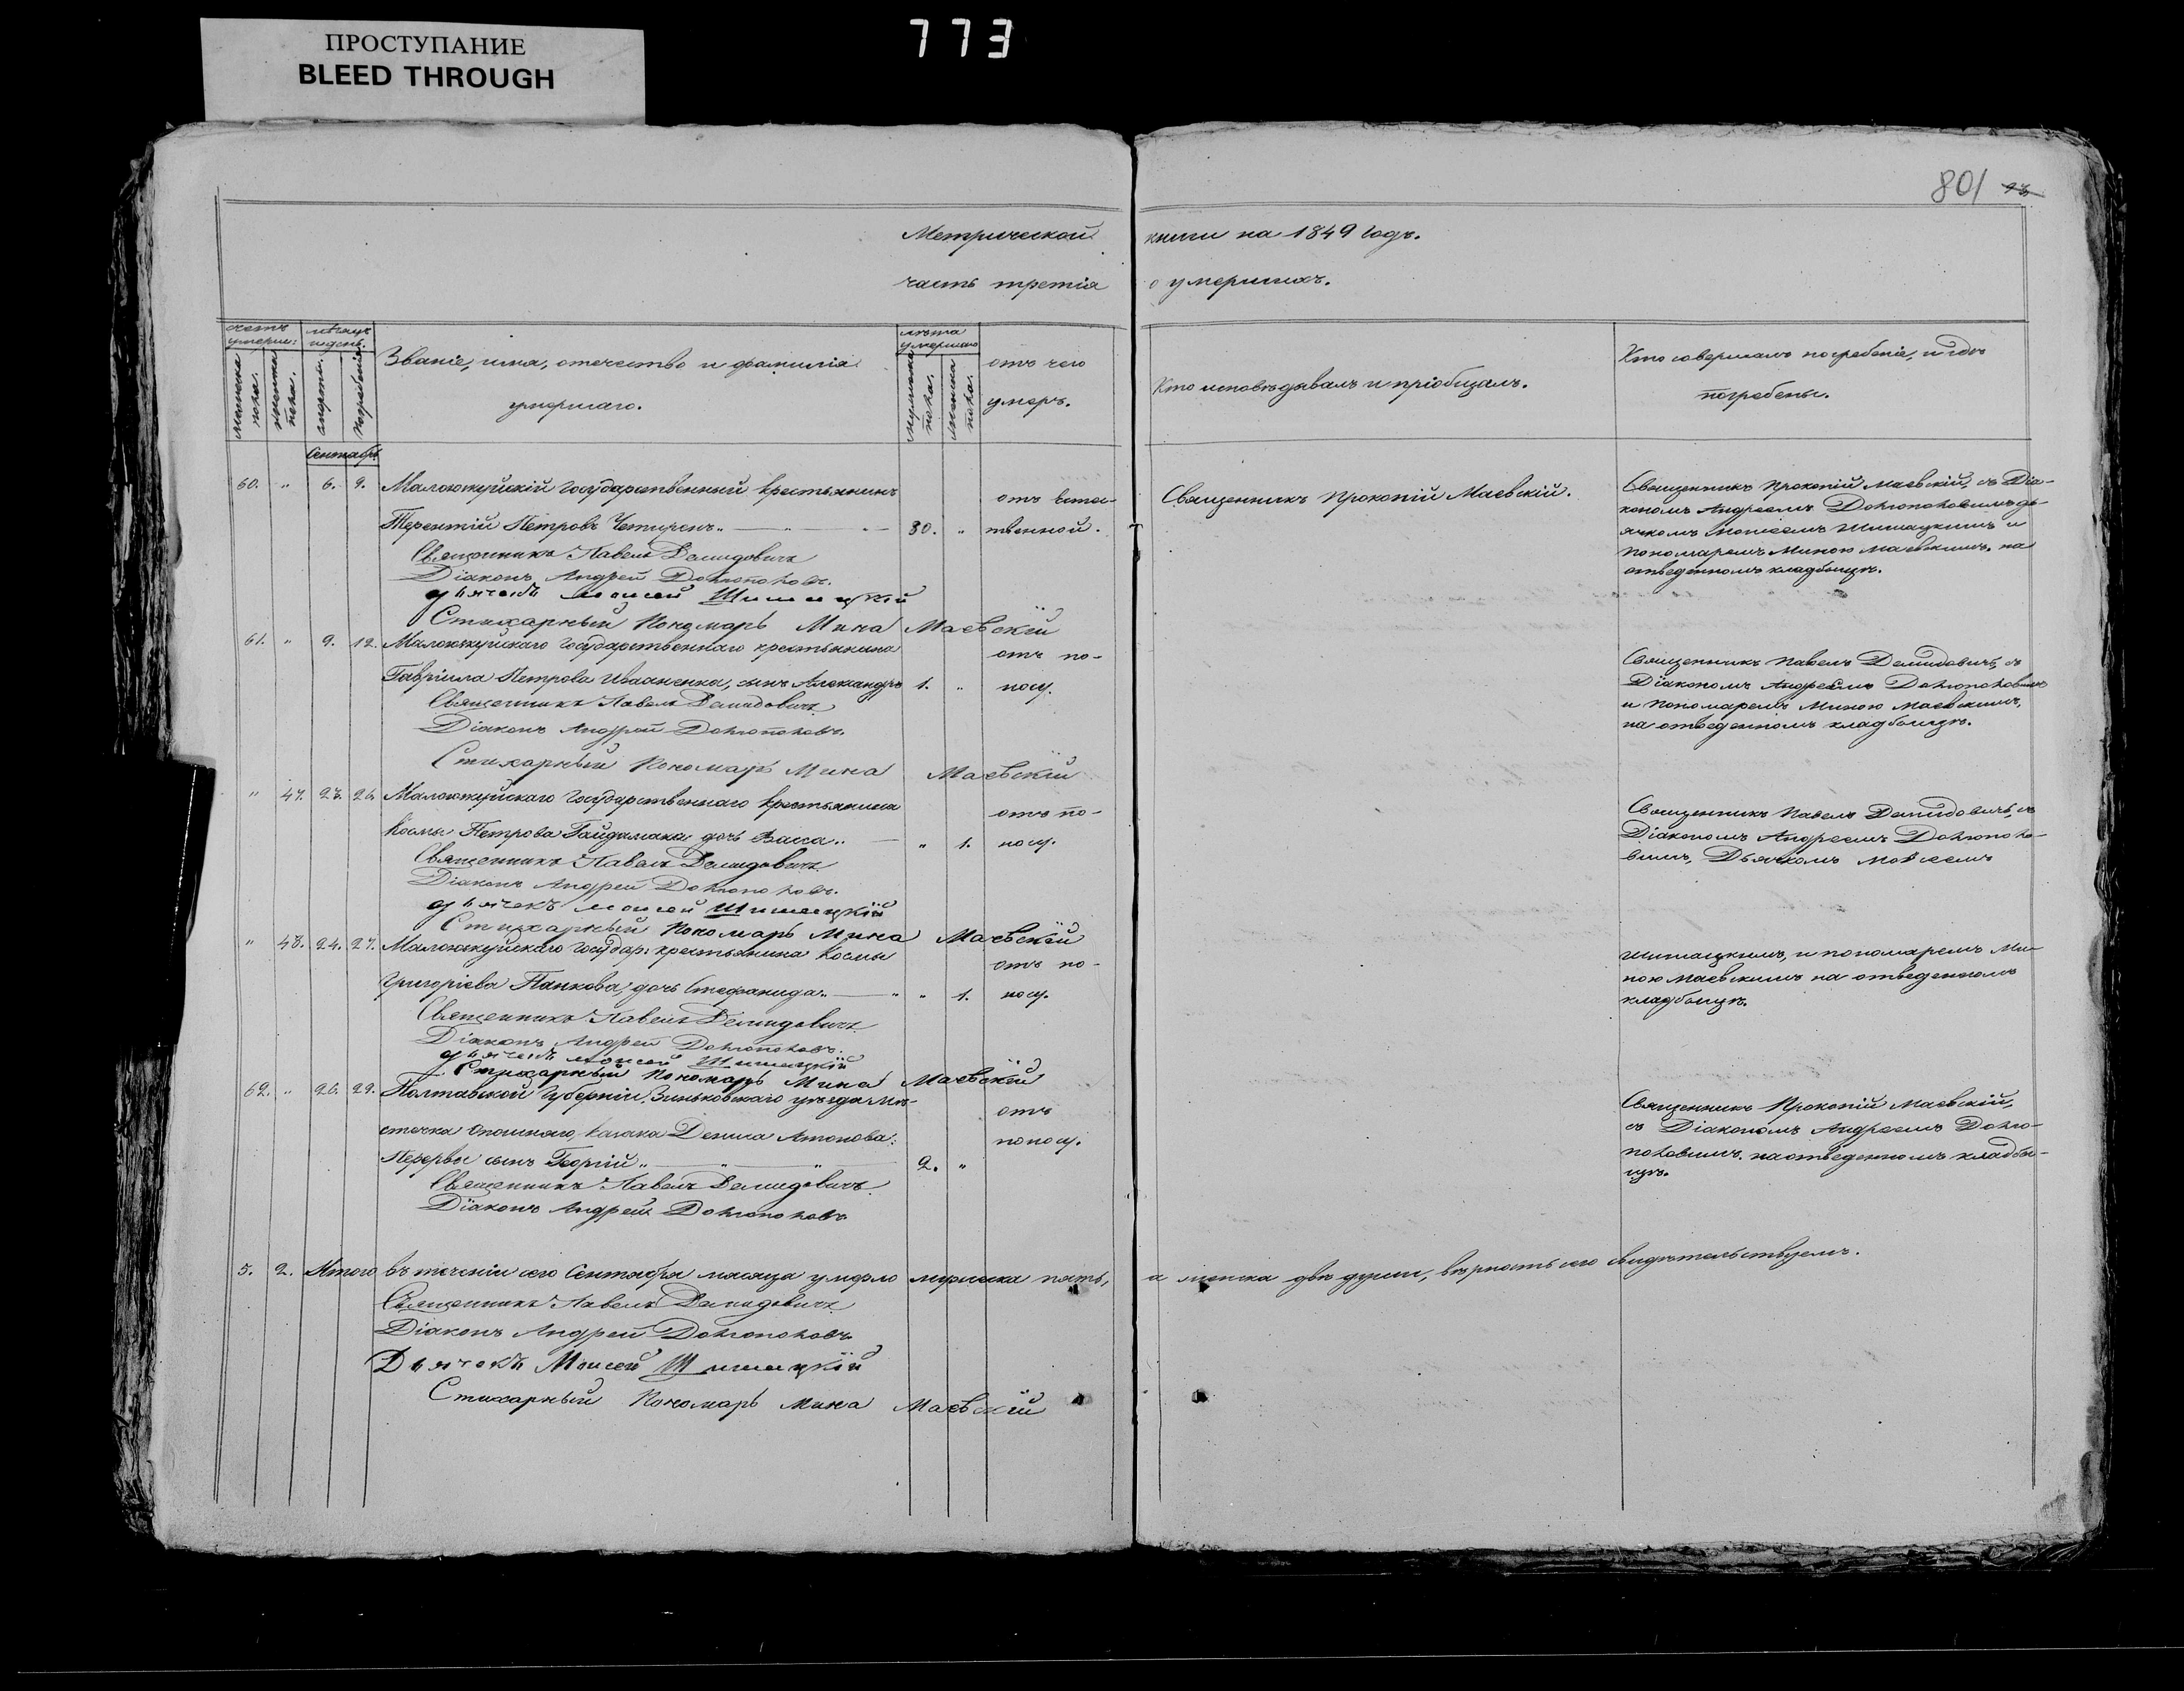 ПРОСТУПАНИЕ
BLEED THROUGH
773
801
Метрической книги на 1849 годъ.
часть третія о умершихъ.
счетъ умерш:
мѣсяцъ и день.
мужеска пола.
женска пола.
смерти.
погребенія.
Званіе, имя, отечество и фамилія
умершаго.
лѣта умершаго
мужеска пола.
женска пола.
отъ чего
умеръ.
Кто исповѣдывалъ и пріобщалъ.
Кто совершалъ погребеніе, и гдѣ
погребены.
Сентябрь
60. " 6. 9. Маложжуйскій Государственный крестьянинъ отъ естес-
Терентій Петровъ 80. " твенной.
Священникъ Прокопій Маевскій.
Священникъ Прокопій Маевскій, съ Діа-
кономъ Андреемъ Долгополовымъ дь-
ячкомъ Моисеемъ Шишацкимъ и
пономаремъ Миною Маевскимъ. на
отведенномъ кладбищѣ.
Священникъ Павелъ Демидовичъ
Діаконъ Андрей Долгополовъ.
дьячекъ моисей Шишацкій
Стихарный Пономарь Мина Маевскій
61. " 9. 12. Государственнаго крестьянина отъ по-
Гавріила Петрова Иваненка, сынъ Александръ 1. " носу.
Священникъ Павелъ Демидовичъ, съ
Діакономъ Андреемъ Долгополовымъ
и пономаремъ Миною Маевскимъ,
на отведенномъ кладбищѣ.
Священникъ Павелъ Демидовичъ
Діаконъ Андрей Долгополовъ.
Стихарный Пономарь Мина Маевскій
" 47. 23. 26. Государственнаго крестьянина отъ по-
Космы Петрова Гайдамака дочь Васса. " 1. носу.
Священникъ Павелъ Демидовичъ, съ
Діакономъ Андреемъ Долгополо-
вымъ, Дьячкомъ Моисеемъ
Священникъ Павелъ Демидовичъ
Діаконъ Андрей Долгополовъ.
дьячекъ моисей Шишацкій
Стихарный Пономарь Мина Маевскій
" 48. 24. 27. Государ: крестьянина Космы отъ по-
Григоріева Панкова, дочь Стефанида. " " 1. носу.
Шишацкимъ, и пономаремъ Ми-
ною Маевскимъ на отведенномъ
кладбищѣ.
Священникъ Павелъ Демидовичъ
Діаконъ Андрей Долгополовъ.
дьячекъ моисей Шишацкій
Стихарный Пономарь Мина Маевскій
62. " 26. 29. Полтавской Губерніи, Зиньковскаго уѣзда мѣ- отъ
стечка Опошнаго, казака Дениса поносу.
Перервы сынъ Георгій " " 2. "
Священникъ Прокопій Маевскій,
съ Діакономъ Андреемъ Долго-
половымъ. на отведенномъ кладби-
щѣ.
Священникъ Павелъ Демидовичъ
Діаконъ Андрей Долгополовъ
5. 2. Итого въ теченіи сего Сентября мѣсяца умерло мужеска пять, а женска двѣ души, вѣрность сего свидѣтельствуемъ.
Священникъ Павелъ Демидовичъ
Діаконъ Андрей Долгополовъ
Дьячекъ Моисей Шишацкій
Стихарный Пономарь Мина Маевскій